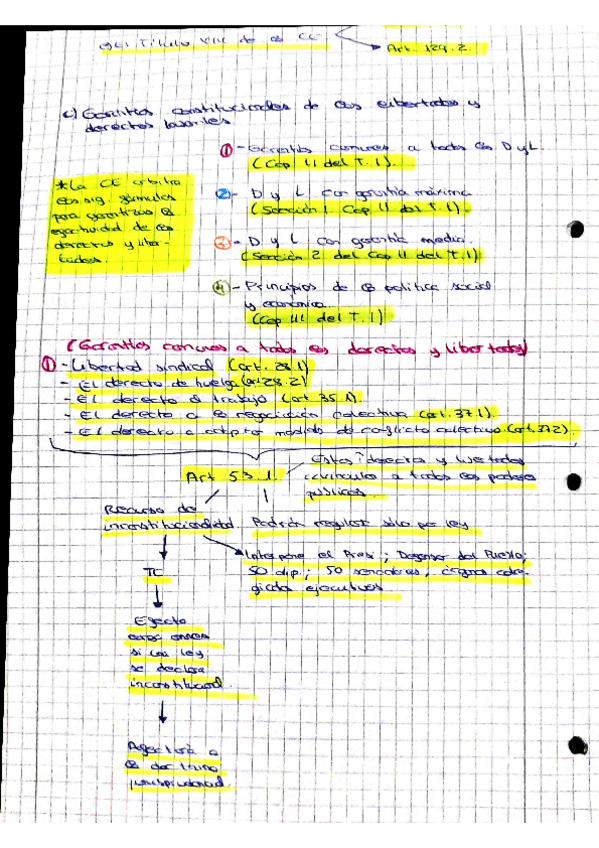 el Título VIII de la CE
Art. 129.2.
c) Garantías constitucionales de las libertades y
derechos laborales.
① - Garantías comunes a todos los D y L.
(Cap II del T.1).
*La CE arbitra
las sig. fórmulas
para garantizar la
efectividad de los
derechos y liber-
tades.
② - D y L con garantía máxima
(Sección 1 Cap II del T.1).
③ - D y L con garantía media.
(Sección 2 del Cap II del T.1)
④ - Principios de la política social
y económica.
(Cap III del T.1)
(Garantías comunes a todos los derechos y libertades)
① - Libertad sindical (art. 28.1)
- El derecho de huelga (art 28.2)
- El derecho al trabajo (art. 35.1).
- El derecho a la negociación colectiva (art. 37.1).
- El derecho a adoptar medidas de conflicto colectivo (art. 37.2).
Art 53.1.
Estos derechos y libertades
vinculan a todos los poderes
públicos.
Recurso de
inconstitucionalidad.
Podrán regularse sólo por ley
Interpone el Presi; Defensor del Pueblo;
50 dip.; 50 senadores, órganos cole-
giados ejecutivos
TC
Efecto
erga omnes
si una ley
se declara
inconstitucional.
Afectará a
la doctrina
jurisprudencial.